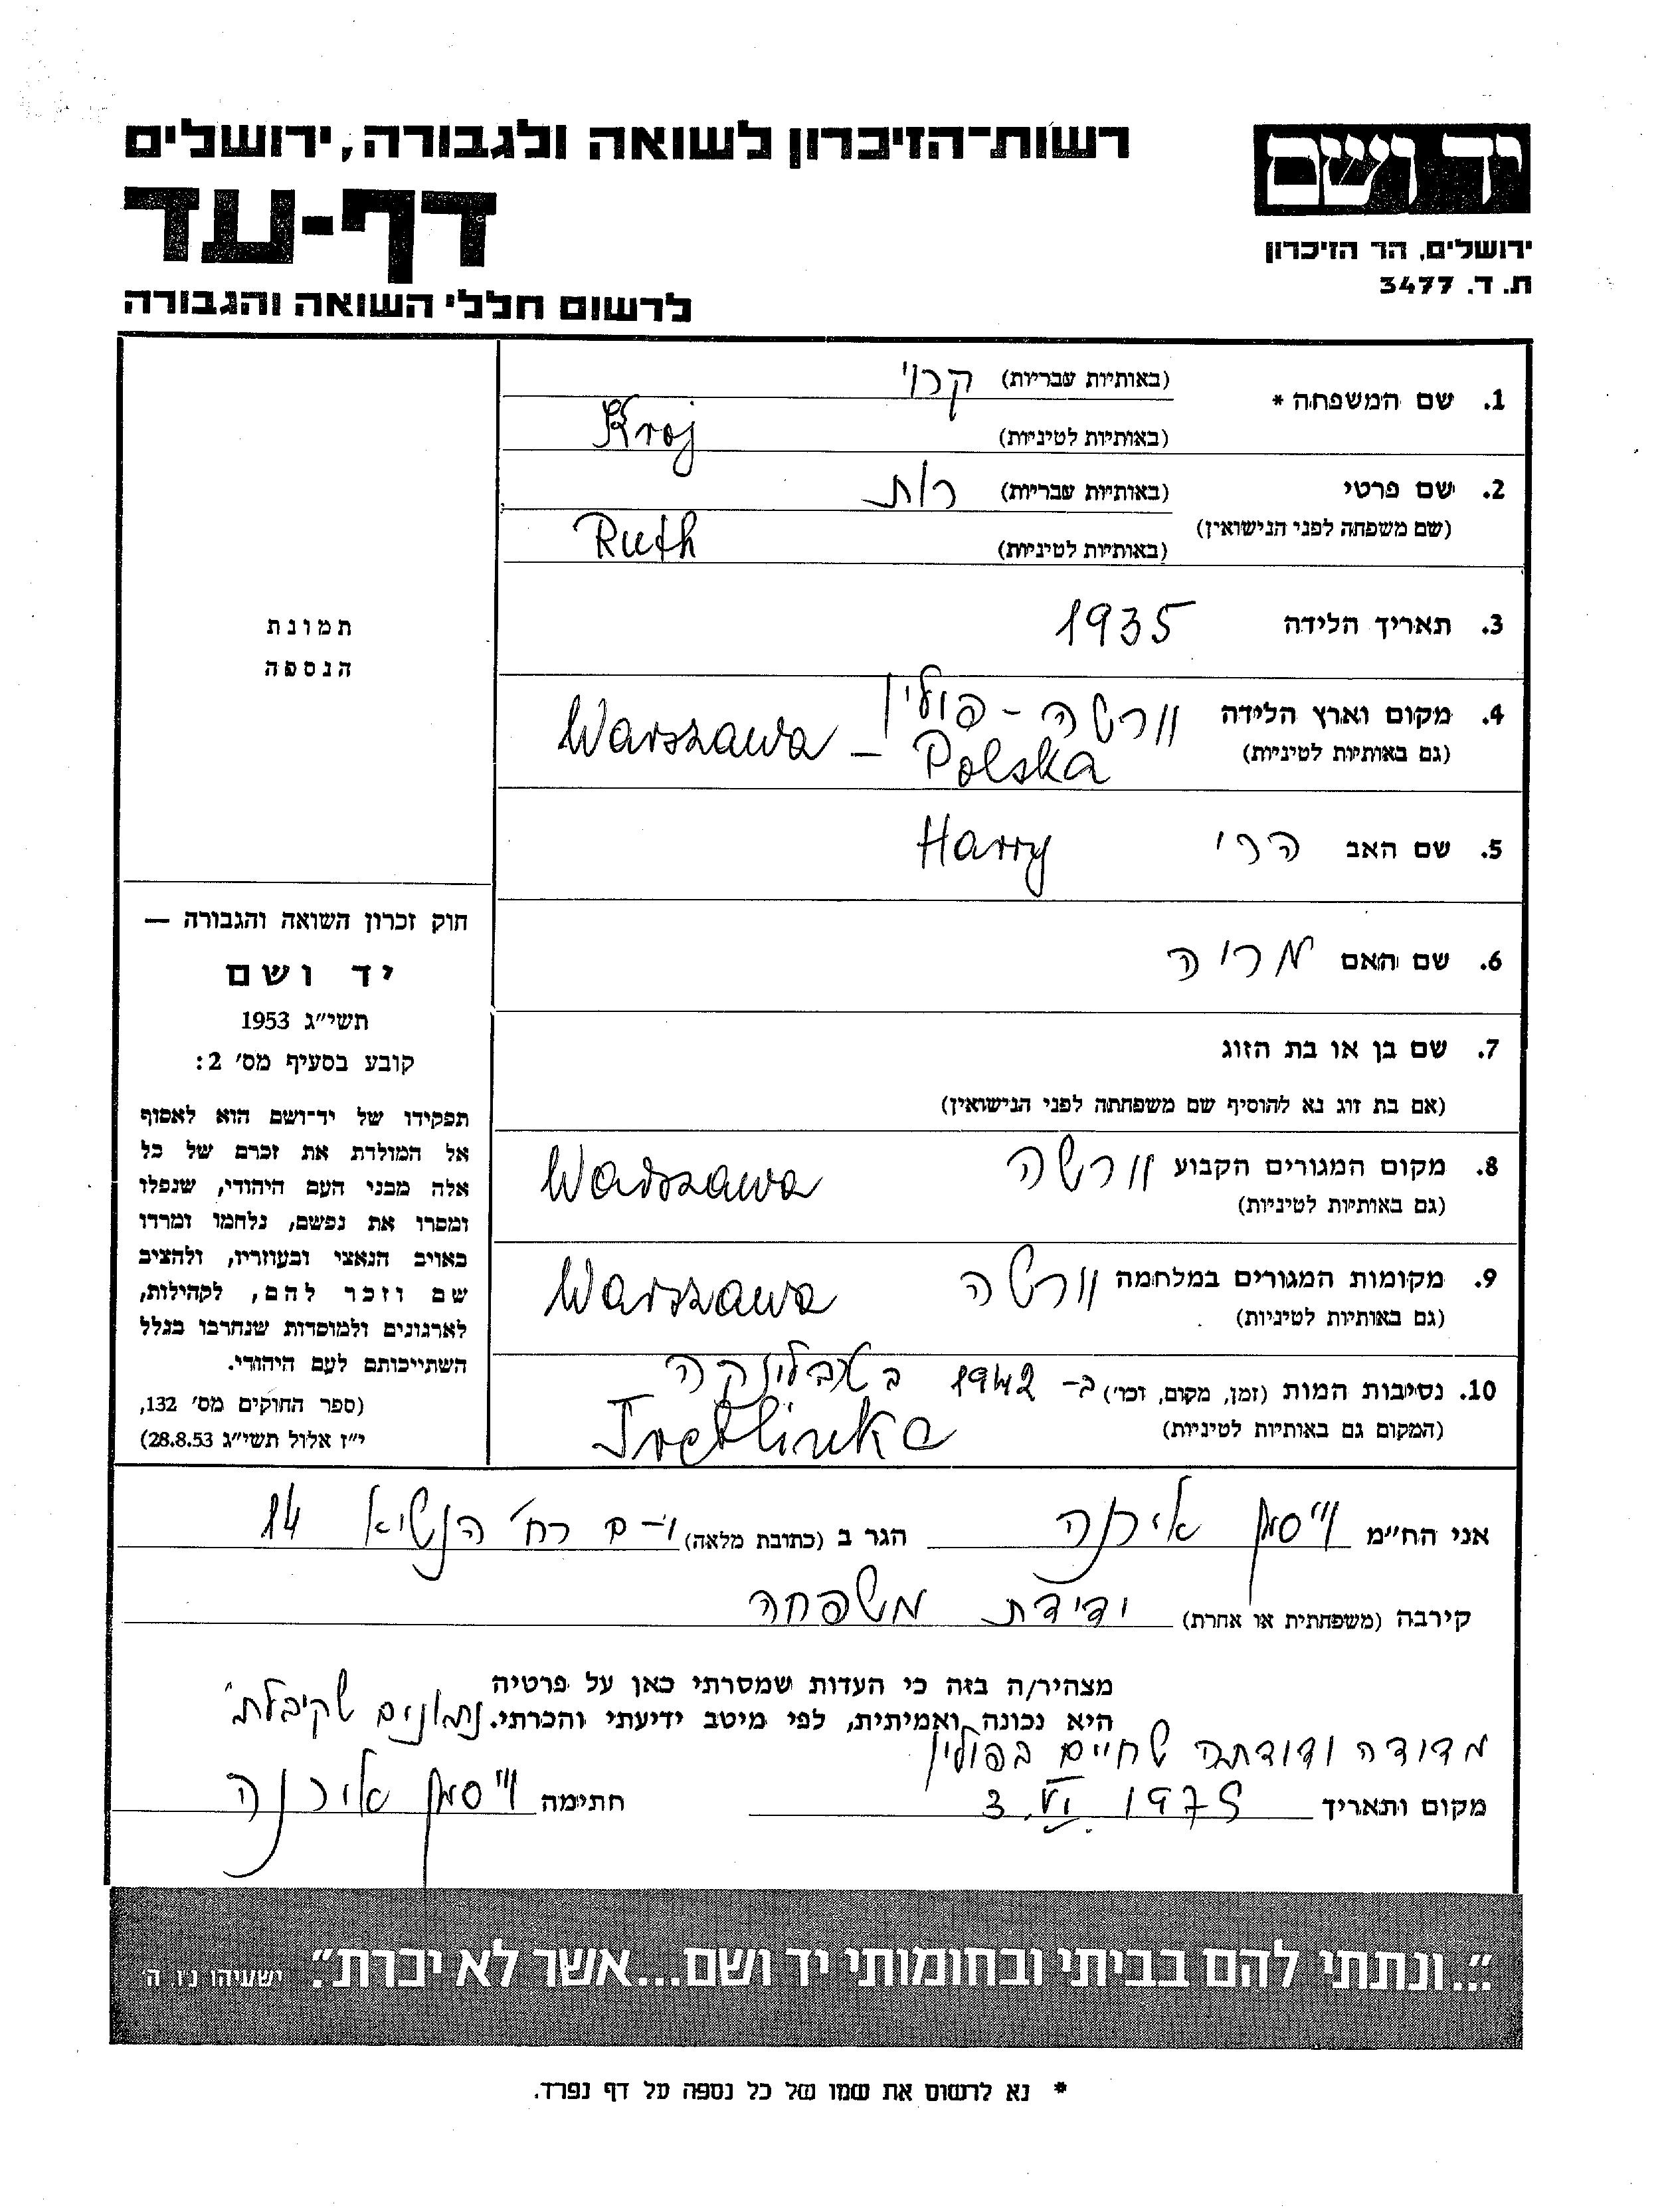 רשות־הזיכרון לשואה ולגבורה, ירושלים
דף-עד
לרשום חללי השואה והגבורה
יד ושם
ירושלים, הר הזיכרון
ת. ד. 3477
1. שם המשפחה * (באותיות עבריות) קרוי
(באותיות לטיניות) Kroj
2. שם פרטי (באותיות עבריות) רות
(שם משפחה לפני הנישואין)
(באותיות לטיניות) Ruth
3. תאריך הלידה 1935
4. מקום וארץ הלידה וורשה - פולין
(גם באותיות לטיניות) Warszawa - Polska
5. שם האב הרי Harry
6. שם האם מריה
7. שם בן או בת הזוג
(אם בת זוג נא להוסיף שם משפחתה לפני הנישואין)
8. מקום המגורים הקבוע וורשה Warszawa
(גם באותיות לטיניות)
9. מקומות המגורים במלחמה וורשה Warszawa
(גם באותיות לטיניות)
10. נסיבות המות (זמן, מקום, וכו') ב- 1942 בטרבלינקה
(המקום גם באותיות לטיניות) Treblinka
תמונת
הנספה
חוק זכרון השואה והגבורה —
יד ושם
תשי״ג 1953
קובע בסעיף מס' 2:
תפקידו של יד־ושם הוא לאסוף
אל המולדת את זכרם של כל
אלה מבני העם היהודי, שנפלו
ומסרו את נפשם, נלחמו ומרדו
באויב הנאצי ובעוזריו, ולהציב
שם וזכר להם, לקהילות,
לארגונים ולמוסדות שנחרבו בגלל
השתייכותם לעם היהודי.
(ספר החוקים מס' 132,
י״ז אלול תשי״ג 28.8.53)
אני הח״מ וייסמן אירנה הגר ב (כתובת מלאה) י-ם רח' הנשיא 14
קירבה (משפחתית או אחרת) ידידת משפחה
מצהיר/ה בזה כי העדות שמסרתי כאן על פרטיה
היא נכונה ואמיתית, לפי מיטב ידיעתי והכרתי. נתונים שקיבלתי
מדודה ודודתה שחיים בפולין
מקום ותאריך 3.VI.1975 חתימה וייסמן אירנה
״...ונתתי להם בביתי ובחומותי יד ושם...אשר לא יכרת״. ישעיהו נ״ו, ה'
* נא לרשום את שמו של כל נספה על דף נפרד.